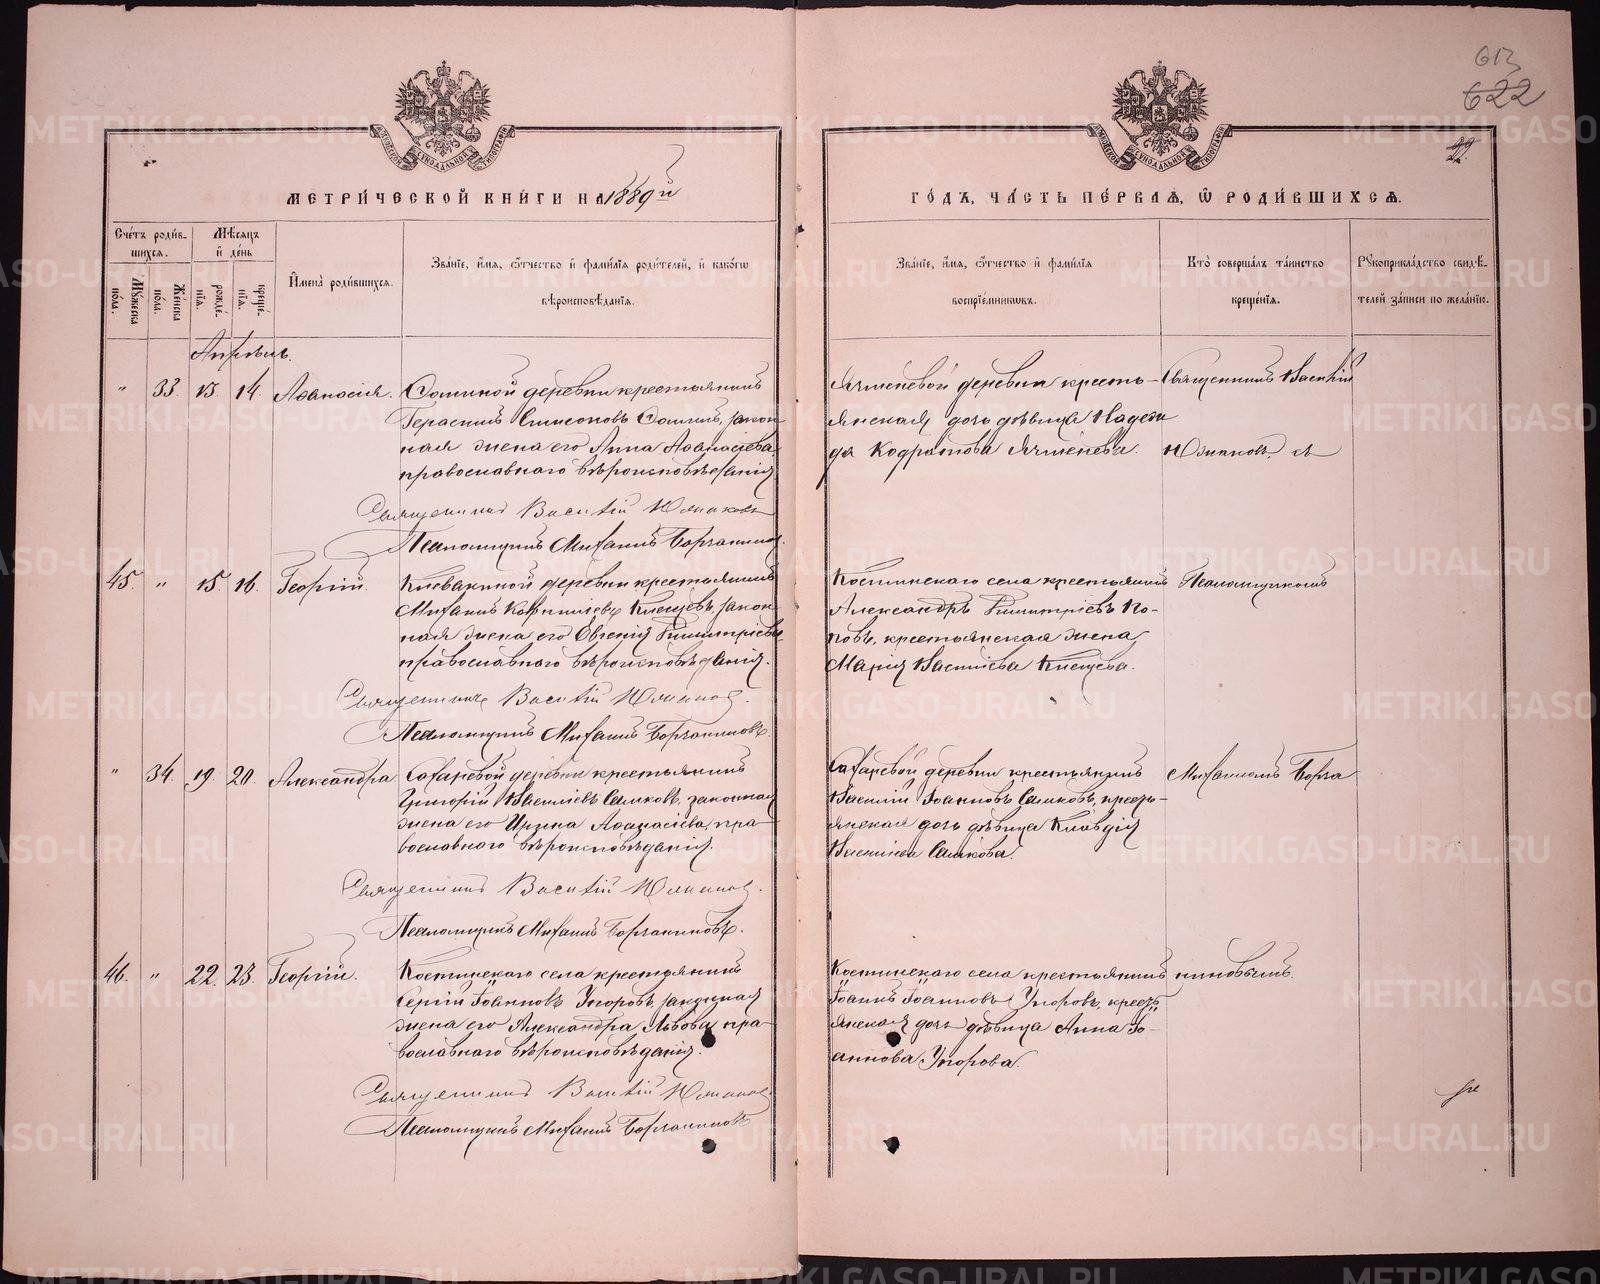 613
622
22.
МЕТРИЧЕСКОЙ КНИГИ НА 1889й
ГОДЪ, ЧАСТЬ ПЕРВАЯ, Ѡ РОДИВШИХСЯ.
Счетъ родив-
шихся.
Мужеска
пола.
Женска
пола.
Мѣсяцъ
и день
рожде-
нія.
креще-
нія.
Имена родившихся.
Званіе, имя, отчество и фамилія родителей, и какогѡ
вѣроисповѣданія.
Званіе, имя, отчество и фамилія
воспріемниковъ.
Кто совершалъ таинство
крещенія.
Рукоприкладство свидѣ-
телей записи по желанію.
Апрѣль.
„ 33. 13. 14. Аѳанасія.
Соминой деревни крестьянинъ
Герасимъ Симеоновъ Соминъ, закон
ная жена его Анна Аѳанасіева,
православнаго вѣроисповѣданія.
Священникъ Василій Южаковъ
Псаломщикъ Михаилъ Борчаниновъ.
Ячменевой деревни кресть-
янская дочь дѣвица Надеж
да Кодратова Ячменева.
Священникъ Василій
Южаковъ, съ
45. „ 15. 16. Георгій.
Клевакиной деревни крестьянинъ
Михаилъ Клещевъ, закон-
ная жена его Евгенія Димитріева
православнаго вѣроисповѣданія.
Священникъ Василій Южаковъ.
Псаломщикъ Михаилъ Борчаниновъ.
Костинскаго села крестьянинъ
Александръ Димитріевъ По-
повъ, крестьянская жена
Марія Василіева Клещева.
Псаломщикомъ
„ 34. 19. 20. Александра
Сохаревой деревни крестьянинъ
Григорій Василіевъ Самковъ, законная
жена его Ирина Аѳанасіева, пра-
вославнаго вѣроисповѣданія.
Священникъ Василій Южаковъ.
Псаломщикъ Михаилъ Борчаниновъ.
Сохаревой деревни крестьянинъ
Василій Іоанновъ Самковъ, кресть-
янская дочь дѣвица Клавдія
Василіева Самкова.
Михаиломъ Борча
46. „ 22. 23. Георгій.
Костинскаго села крестьянинъ
Сергій Іоанновъ Упоровъ, законная
жена его Александра Львова, пра-
вославнаго вѣроисповѣданія.
Священникъ Василій Южаковъ.
Псаломщикъ Михаилъ Борчаниновъ
Костинскаго села крестьянинъ
Іоаннъ Іоанновъ Упоровъ, кресть
янская дочь дѣвица Анна Іо-
аннова Упорова.
ниновымъ.
METRIKI.GASO-URAL.RU